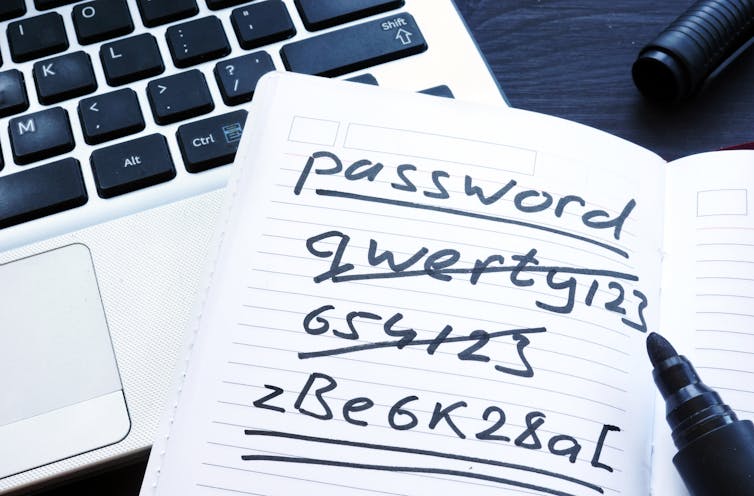 I O P { [ } ]
K L : ; " '
Shift
M < , > . ? /
Alt Ctrl
password
qwerty123
654123
zBe6K28a[